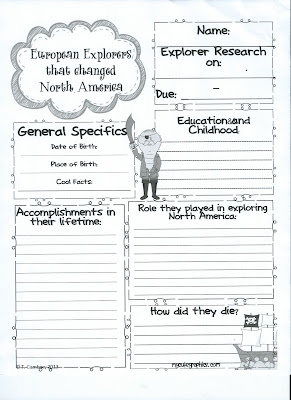 European Explorers
that changed
North America
Name:
Explorer Research
on:
Due: -
General Specifics
Date of Birth:
Place of Birth:
Cool Facts:
Education and
Childhood:
Accomplishments in
their lifetime:
Role they played in exploring
North America:
How did they die?
mycutegraphics.com